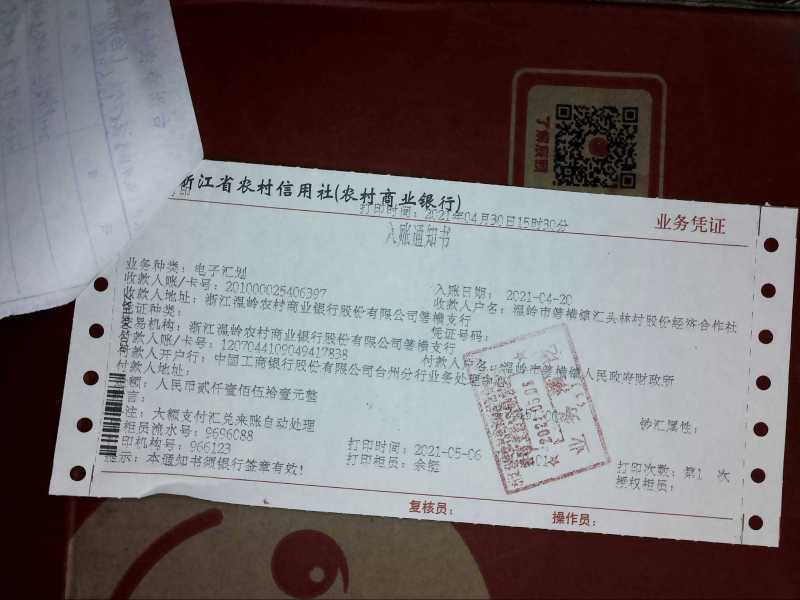 浙江省农村信用社(农村商业银行)
打印时间:2021年04月30日15时30分
业务凭证
入账通知书
业务种类:电子汇划
入账日期: 2021-04-20
收款人账/卡号:201000025406397
收款人户名:温岭市箬横镇汇头林村股份经济合作社
收款人地址:浙江温岭农村商业银行股份有限公司箬横支行
凭证种类:
凭证号码:
交易机构:浙江温岭农村商业银行股份有限公司箬横支行
付款人账/卡号:1207044109049417838
付款人户名:温岭市箬横镇人民政府财政所
付款人开户行:中国工商银行股份有限公司台州分行业务处理中心
付款人地址:
金额:人民币贰仟壹佰伍拾壹元整
钞汇属性:
言:
注:大额支付汇兑来账自动处理
柜员流水号:9696088
打印时间:2021-05-06
打印次数:第1 次
印机构号:966123
打印柜员:余
授权柜员:
提示:本通知书须银行签章有效!
复核员:
操作员:
业务
了解